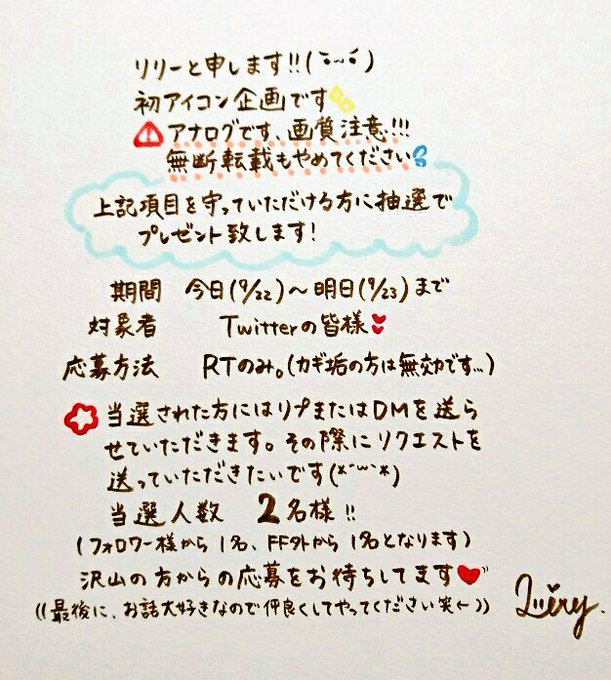 リリーと申します!!(˘ω˘)
初アイコン企画です
アナログです、画質注意!!!
無断転載もやめてください
上記項目を守っていただける方に抽選で
プレゼント致します!
期間 今日(9/22)〜明日(9/23)まで
対象者 Twitterの皆様
応募方法 RTのみ。(カギ垢の方は無効です…)
当選された方にはリプまたはDMを送ら
せていただきます。その際にリクエストを
送っていただきたいです(*´ω`*)
当選人数 2名様!!
(フォロワー様から1名、FF外から1名となります)
沢山の方からの応募をお待ちしてます
((最後に、お話大好きなので仲良くしてやってください笑←))